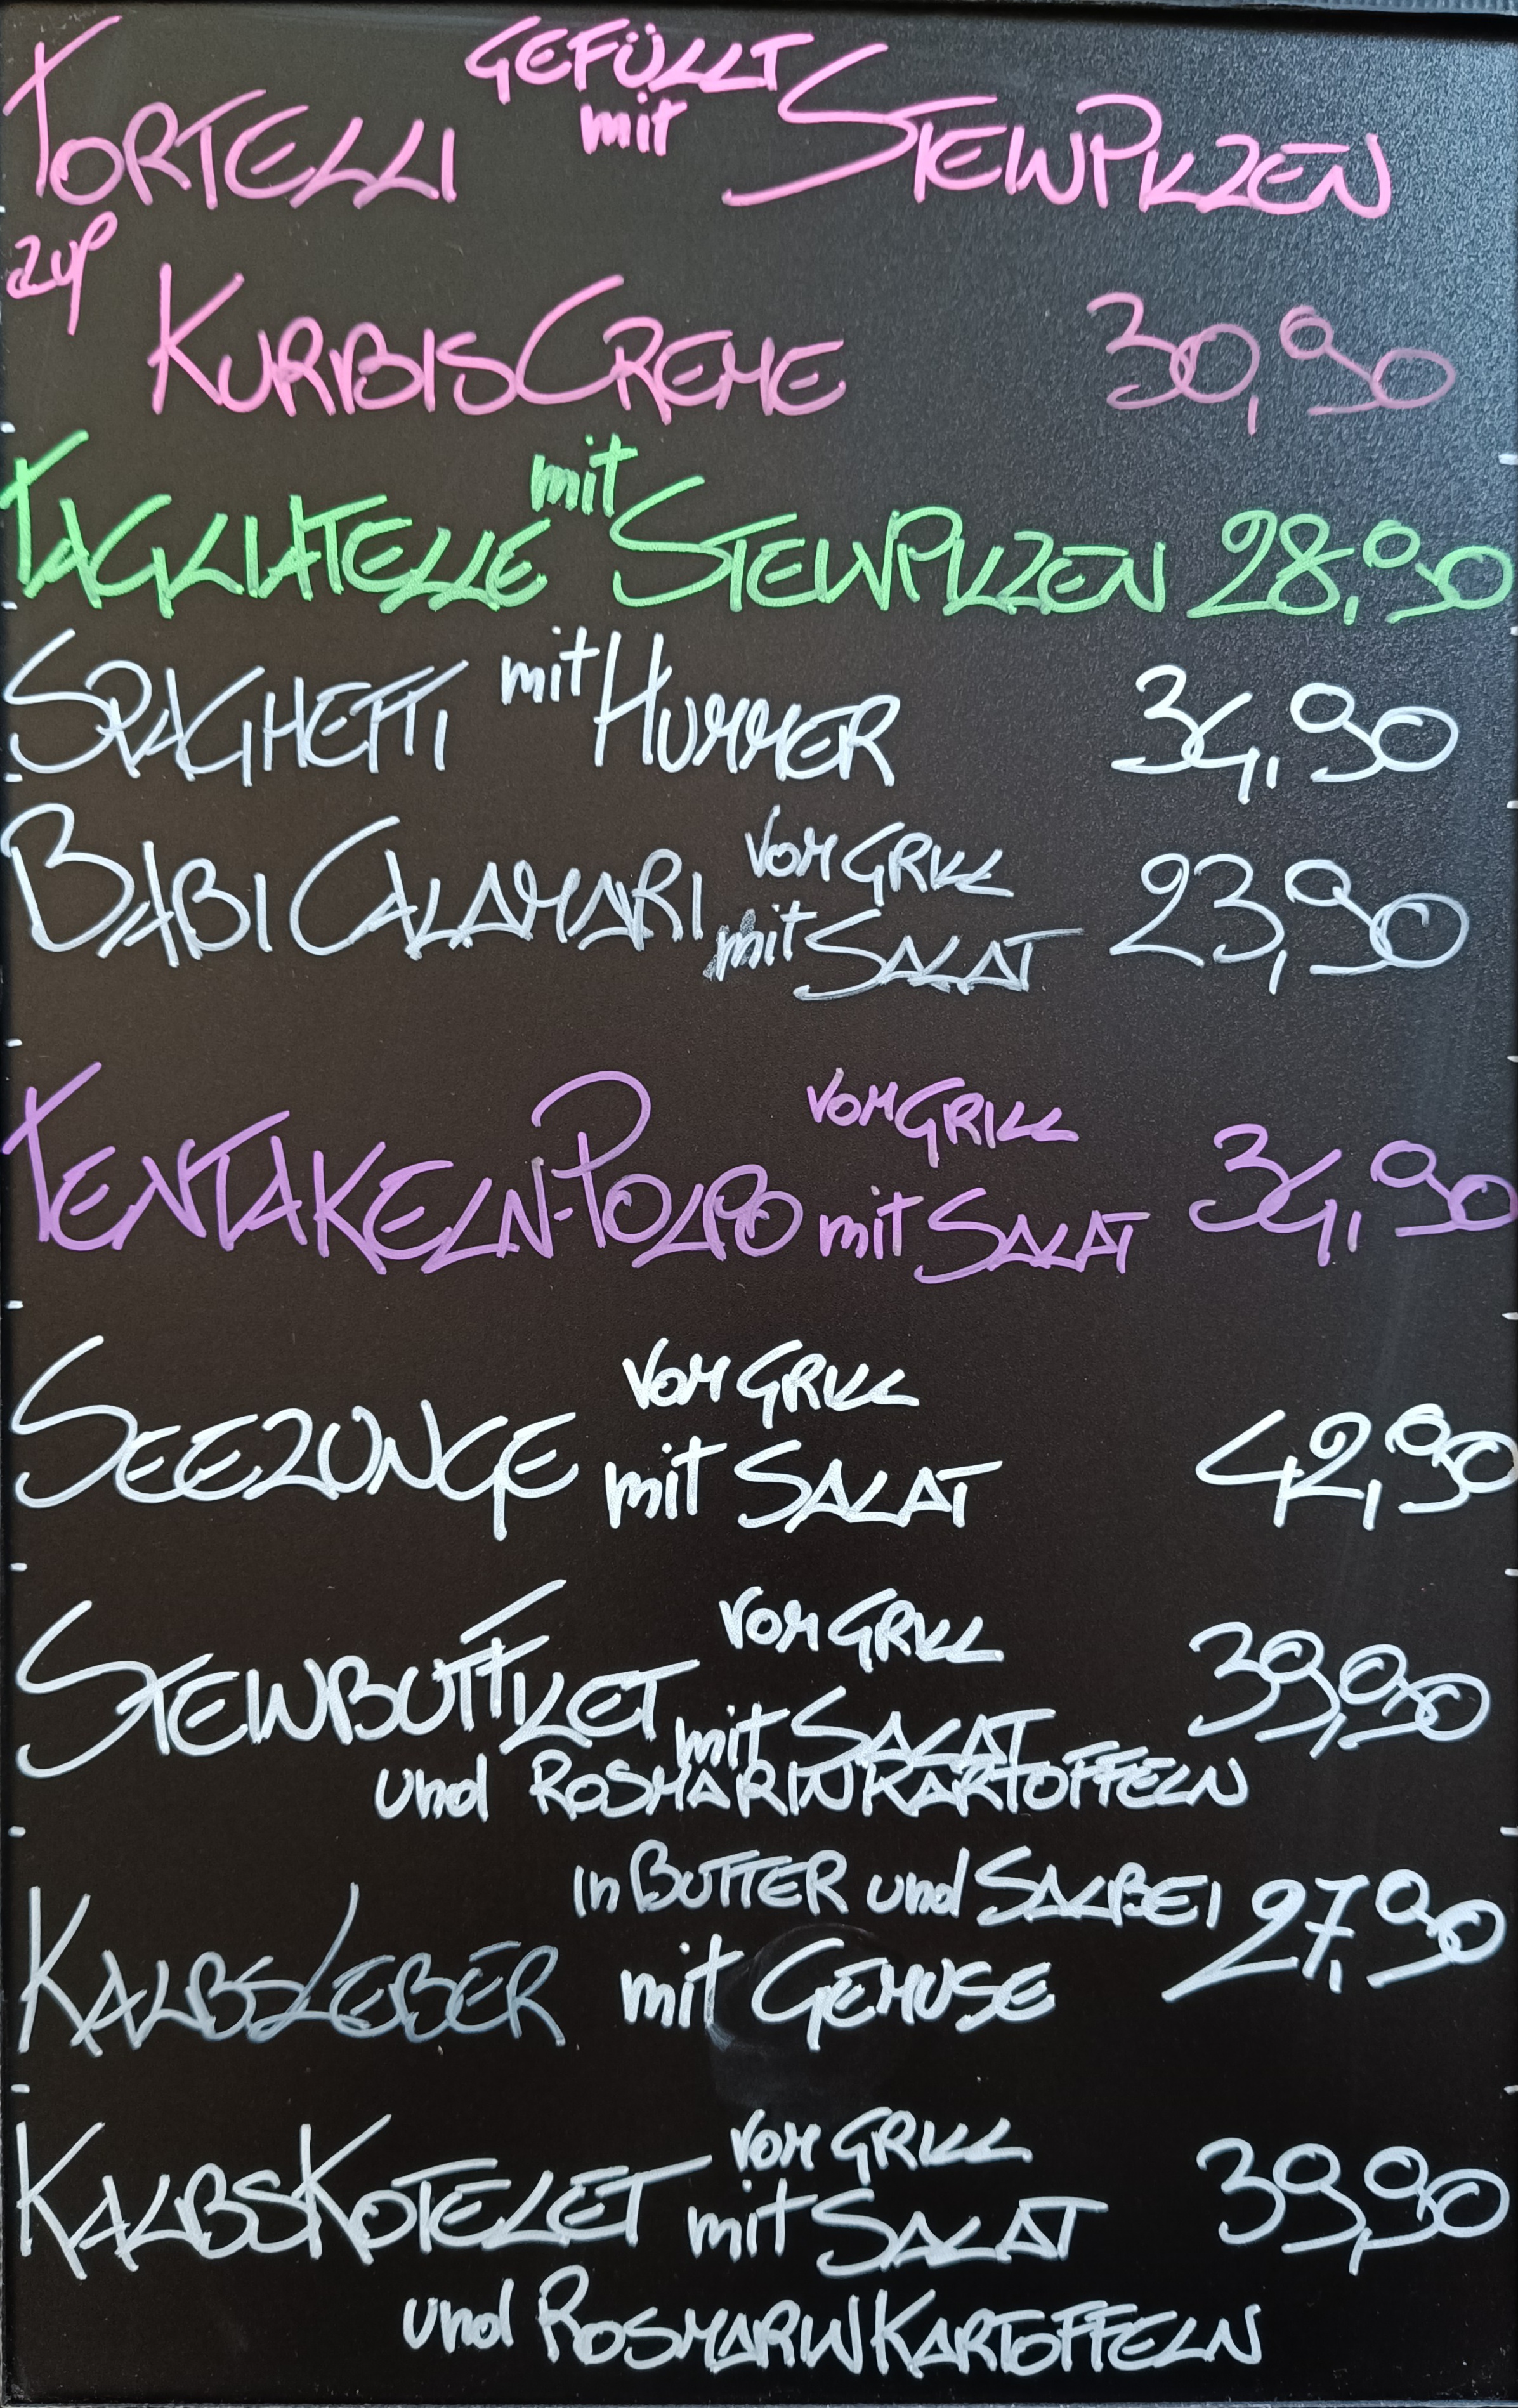 TORTELLI GEFÜLLT mit STEINPILZEN
auf
KURBISCREME 30,90
TAGLIATELLE mit STEINPILZEN 28,90
SPAGHETTI mit HUMMER 34,90
BABI CALAMARI VOM GRILL mit SALAT 23,90
TENTAKELN-POLPO VOM GRILL mit SALAT 34,90
SEEZUNGE VOM GRILL mit SALAT 42,90
STEINBUTTFILET VOM GRILL mit SALAT 39,90
und ROSMARINKARTOFFELN
KALBSLEBER in BUTTER und SALBEI mit GEMUSE 27,90
KALBSKOTELET VOM GRILL mit SALAT 39,90
und ROSMARINKARTOFFELN